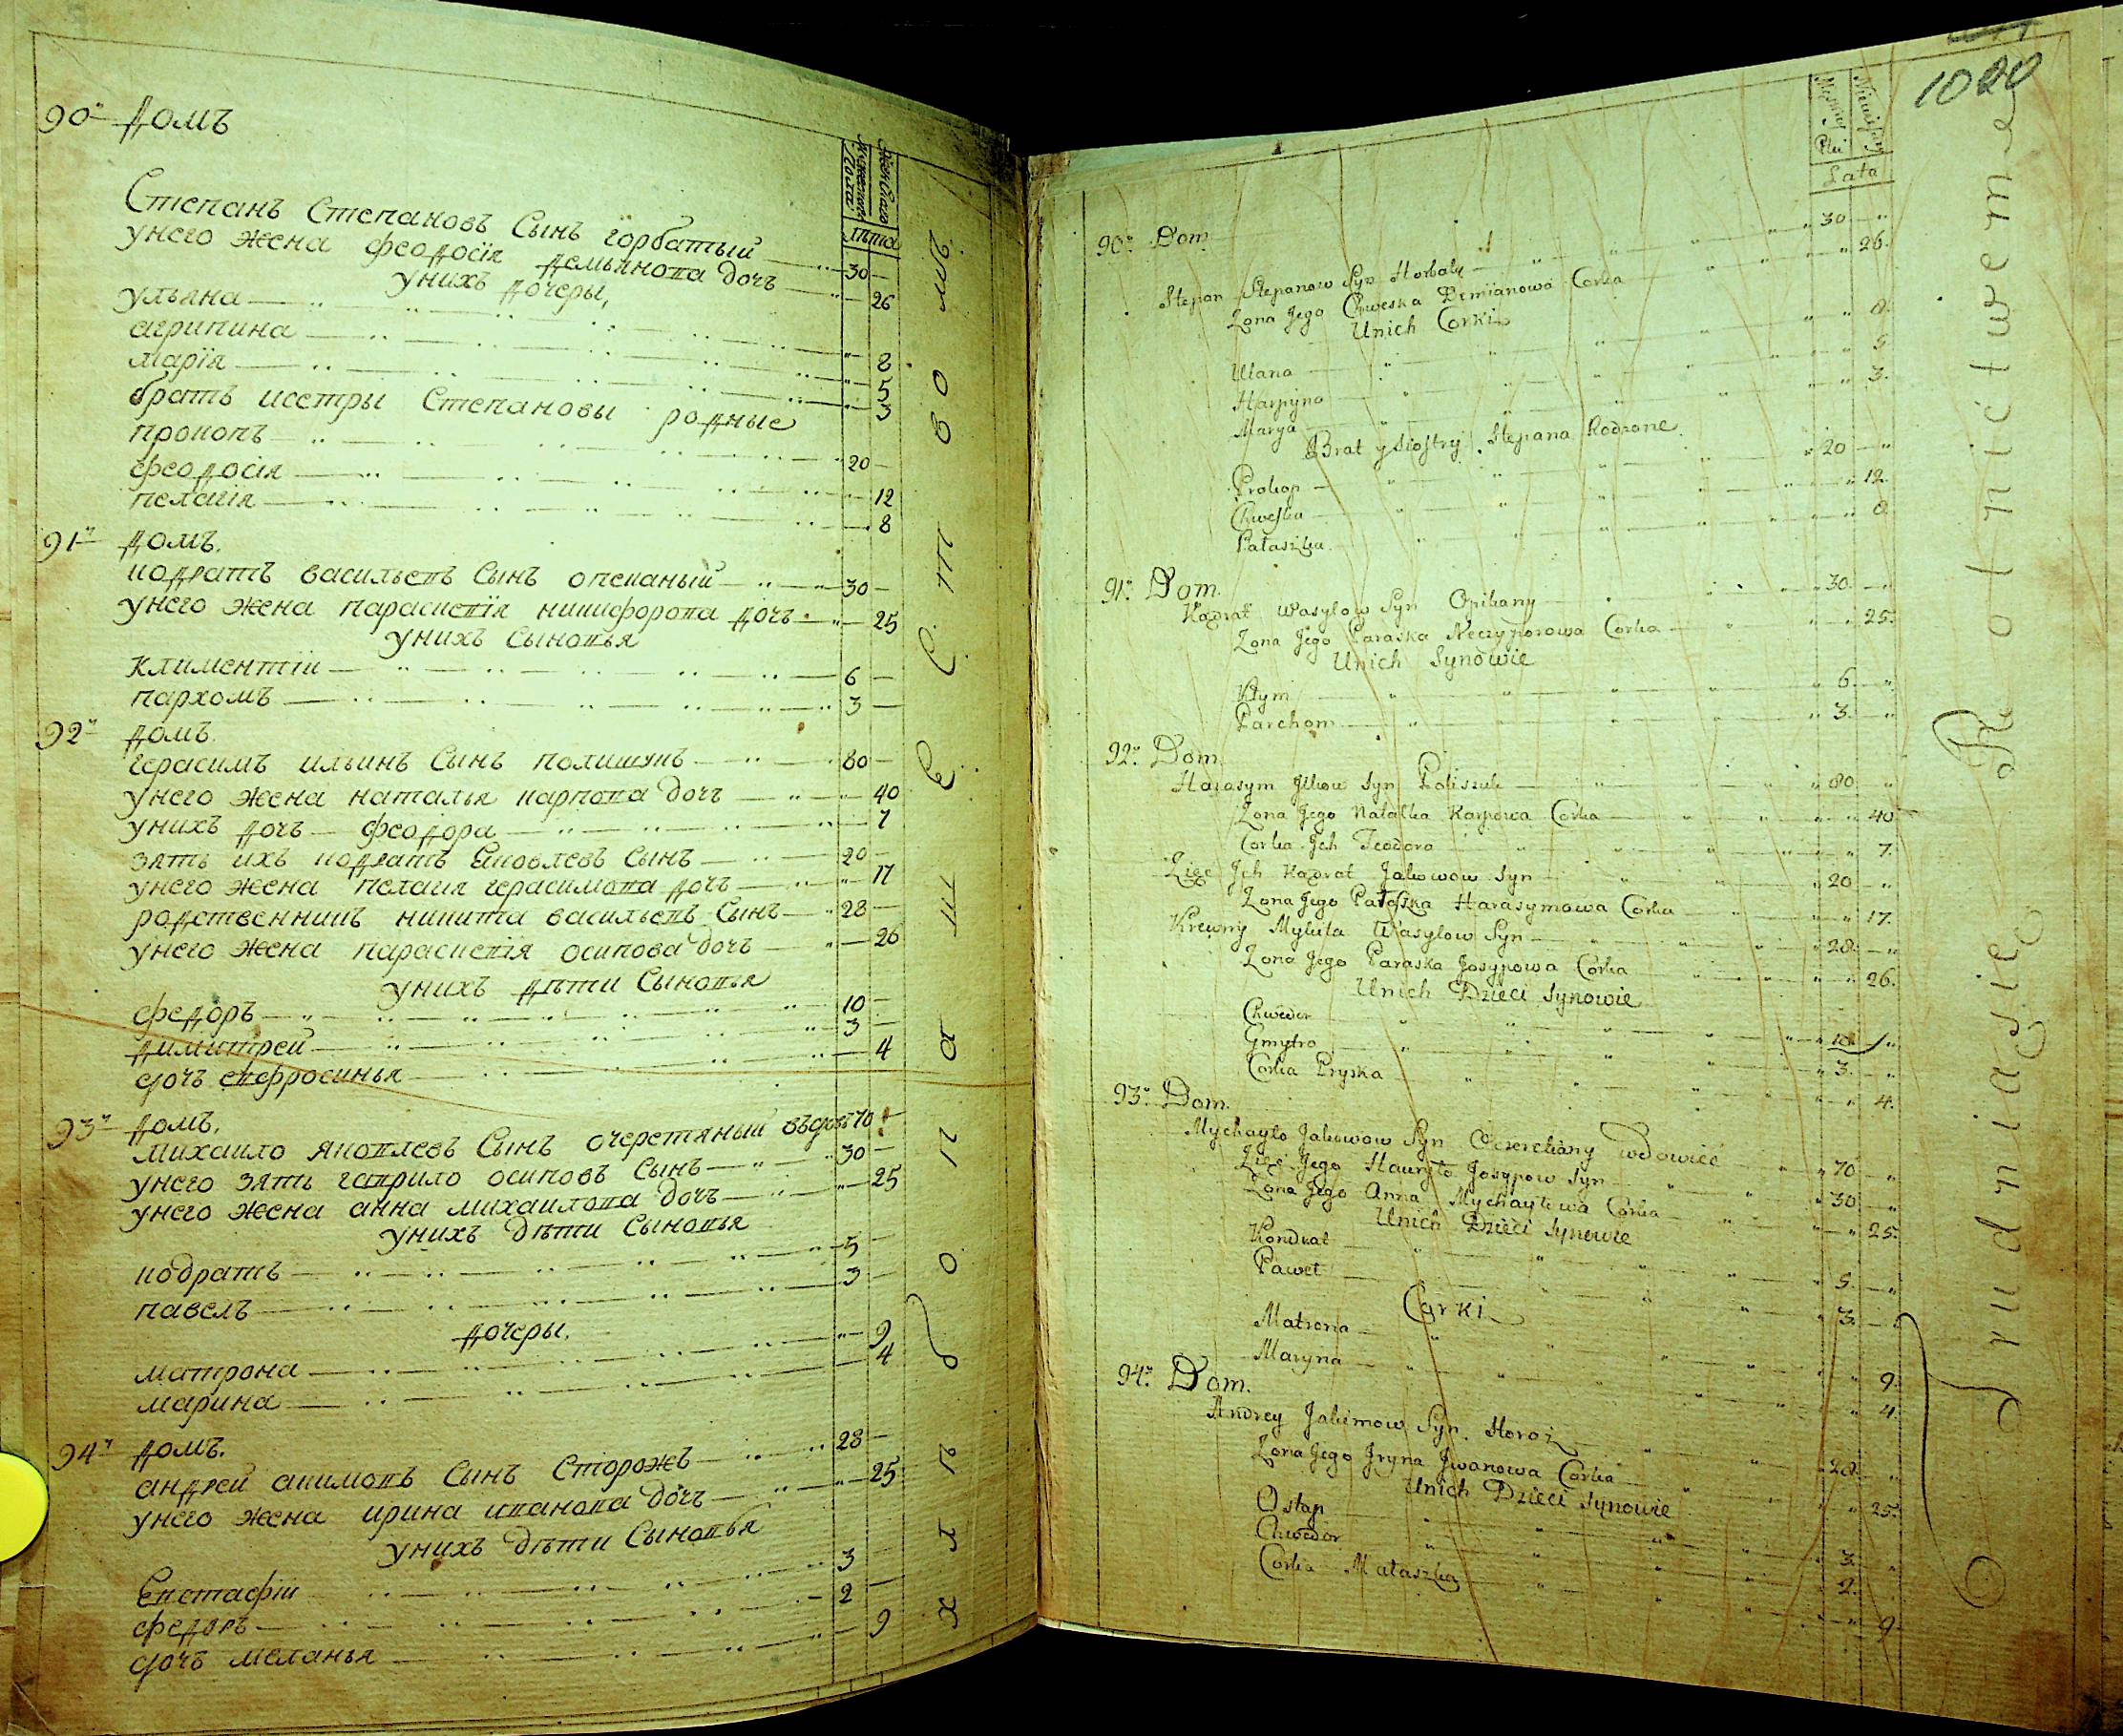 90й домъ
Мужеска полу Женскаго
лѣта
Степанъ Степановъ Сынъ горбатый 30
унего жена феодосія демьянова дочь 26
унихъ дочеры,
ульяна 8
агрипина 5
марія 3
братъ исестры Степановы родные
прокопъ 20
феодосія 12
пелагія 8
91й домъ.
кодратъ васильевъ Сынъ опеканый 30
унего жена параскевія никифорова дочь 25
унихъ Сыновья
климентіи 6
пархомъ 3
92й домъ.
герасимъ ильинъ Сынъ полишукъ 80
унего жена наталья карпова дочь 40
унихъ дочь феодора 7
зять ихъ кодратъ Яковлевъ Сынъ 20
унего жена пелагія герасимова дочь 17
родственникъ никита васильевъ Сынъ 28
унего жена параскевія осипова дочь 26
унихъ дѣти Сыновья
федоръ 10
димитрей 3
дочь евфросинья 4
93й домъ.
михаило яковлевъ Сынъ очеретяный 70
унего зять гаврило осиповъ Сынъ 30
унего жена анна михаилова дочь 25
унихъ дѣти Сыновья
кодратъ 5
павелъ 3
дочеры.
матрона 9
марина 4
94й домъ.
андреи акимовъ Сынъ Сторожъ 28
унего жена ирина иванова дочь 25
унихъ дѣти Сыновья
Евстафіи 3
федоръ 2
дочь меланья 9
1020
Męzkiey Płci
Lata
90o. Dom
Stepan Stepanow Syn Horbaty 30
Zona Jego Chweska Demianowa Corka 26.
Unich Corki
Ulana 8.
Harpyna 5
Marya 3.
Brat y Siostry Stepana Rodzone.
Prokop 20
Chweska 12.
Pałaszka 8.
91o. Dom.
Kadrat Wasylow Syn Opikany 30.
Zona Jego Paraska Neczyporowa Corka 25.
Unich Synowie
Kłym 6.
Parchom 3.
92o. Dom.
Harasym Jlkow Syn Poliszuk 80.
Zona Jego Natalka Karpowa Corka 40
Corka Jch Teodora 7.
Zięć Jch Kadrat Jakowow Syn 20
Zona Jego Pałaszka Harasymowa Corka 17.
Krewny Mykita Wasylow Syn 28.
Zona Jego Paraska Josypowa Corka 26.
Unich Dzieci Synowie
Chwedor 10
Gmytro 3.
Corka Pryska 4.
93o. Dom.
Mychayło Jakowow Syn Oczeretiany Wdowiec 70
Zięć Jego Hauryło Josypow Syn 30
Zona Jego Anna Mychayłowa Corka 25.
Unich Dzieci Synowie
Kondrat 5
Paweł 3.
Corki
Matrona 9.
Maryna 4.
94o. Dom.
Andrey Jakimow Syn. Storoż 28.
Zona Jego Jryna Jwanowa Corka 25.
Unich Dzieci Synowie
Ostap 3.
Chwedor 2.
Corka Małaszka 9.